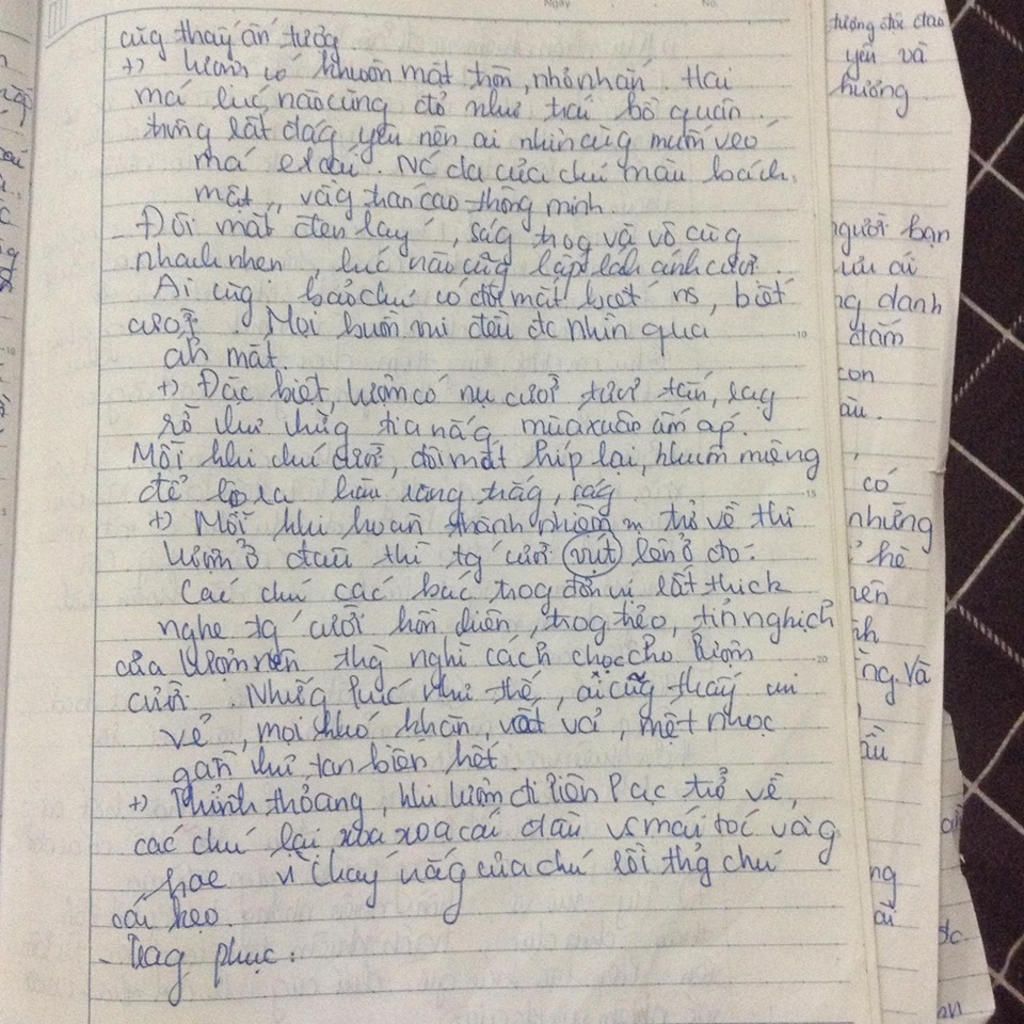 cũg thấy ấn tượg
+) Lượm có khuôn mặt tròn, nhỏ nhắn. Hai
má lúc nào cũng đỏ như trái bồ quân.
trông rất đág yêu nên ai nhìn cũg muốn véo
má Nước da của chú màu bách
mật, vầg trán cao thông minh.
- Đôi mắt đen láy, ság trog và vô cùg
nhanh nhẹn, lúc nào cũg lấp lánh ánh cười.
Ai cũg bảo chú có đôi mắt biết ns, biết
cười. Mọi buồn vui đều đc nhìn qua
ánh mắt.
+) Đặc biệt, Lượm có nụ cười tươi tắn, rạg
rỡ như nhữg tia nắg mùa xuân ấm áp.
Mỗi khi chú cười, đôi mắt híp lại, khuôn miệng
để lộ ra hàm răng trắg, ság.
+) Mỗi khi hoàn thành nhiệm trở về thì
Lượm ở đâu thì tg cười vút lên ở đó.
Các chú các bác trog đơn vị rất thích
nghe tg cười hồn nhiên, trog trẻo, tinh nghịch
của Lượm nên thg nghĩ cách chọc cho Lượm
cười. Nhữg lúc như thế, ai cũg thấy vui
vẻ, mọi khó khăn, vất vả, mệt nhọc
gần như tan biến hết.
+) Thỉnh thoảng, khi Lượm đi liên lạc trở về,
các chú lại xoa xoa cái đầu vs mái tóc vàg
hoe vì cháy nắg của chú rồi thg chú
cái kẹo.
- Trag phục:
tượng độc đáo
yên và
hướng
người bạn
ưu ái
ng danh
đắm
con
có
những
hè
nên
ng. Và
ng
đc